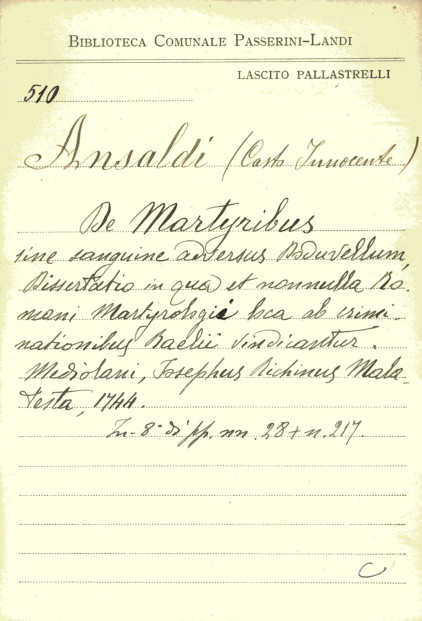 BIBLIOTECA COMUNALE PASSERINI-LANDI
LASCITO PALLASTRELLI
510
Ansaldi (Casto Innocente)
De Martyribus
sine sanguine adversus Doduvellum,
Dissertatio in qua et nonnulla Ro-
mani Martyrologii loca ab crimi-
nationibus Baelii vindicantur.
Mediolani, Josephus Richinus Mala-
testa, 1744.
In-8° di pp. nn. 28 + n. 217.
C